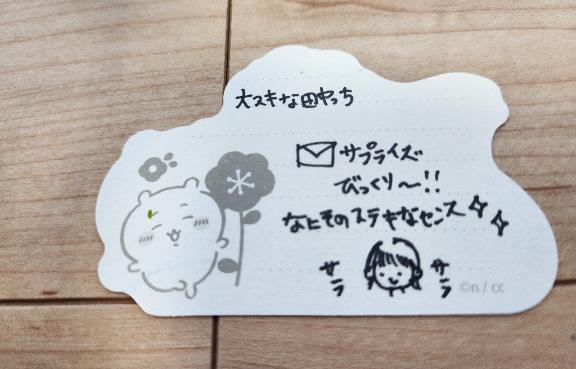 大スキな田やっち
サプライズ
びっくり〜!!
なにそのステキなセンス
サラ サラ
©n/cc